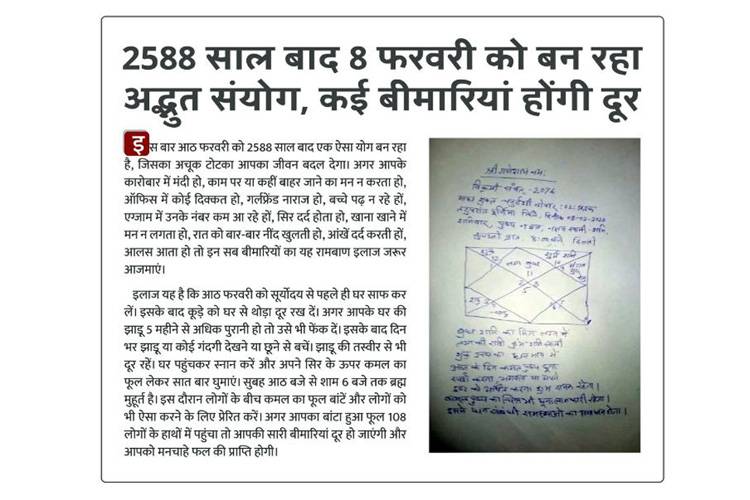 2588 साल बाद 8 फरवरी को बन रहा
अद्भुत संयोग, कई बीमारियां होंगी दूर
इस बार आठ फरवरी को 2588 साल बाद एक ऐसा योग बन रहा
है, जिसका अचूक टोटका आपका जीवन बदल देगा। अगर आपके
कारोबार में मंदी हो, काम पर या कहीं बाहर जाने का मन न करता हो,
ऑफिस में कोई दिक्कत हो, गर्लफ्रेंड नाराज हो, बच्चे पढ़ न रहे हों,
एग्जाम में उनके नंबर कम आ रहे हों, सिर दर्द होता हो, खाना खाने में
मन न लगता हो, रात को बार-बार नींद खुलती हो, आंखें दर्द करती हों,
आलस आता हो तो इन सब बीमारियों का यह रामबाण इलाज जरूर
आजमाएं।
इलाज यह है कि आठ फरवरी को सूर्योदय से पहले ही घर साफ कर
लें। इसके बाद कूड़े को घर से थोड़ा दूर रख दें। अगर आपके घर की
झाडू 5 महीने से अधिक पुरानी हो तो उसे भी फेंक दें। इसके बाद दिन
भर झाडू या कोई गंदगी देखने या छूने से बचें। झाडू की तस्वीर से भी
दूर रहें। घर पहुंचकर स्नान करें और अपने सिर के ऊपर कमल का
फूल लेकर सात बार घुमाएं। सुबह आठ बजे से शाम 6 बजे तक ब्रह्म
मुहूर्त है। इस दौरान लोगों के बीच कमल का फूल बांटें और लोगों को
भी ऐसा करने के लिए प्रेरित करें। अगर आपका बांटा हुआ फूल 108
लोगों के हाथों में पहुंचा तो आपकी सारी बीमारियां दूर हो जाएंगी और
आपको मनचाहे फल की प्राप्ति होगी।
श्री गणेशाय नमः
विक्रमी संवत् - 2076